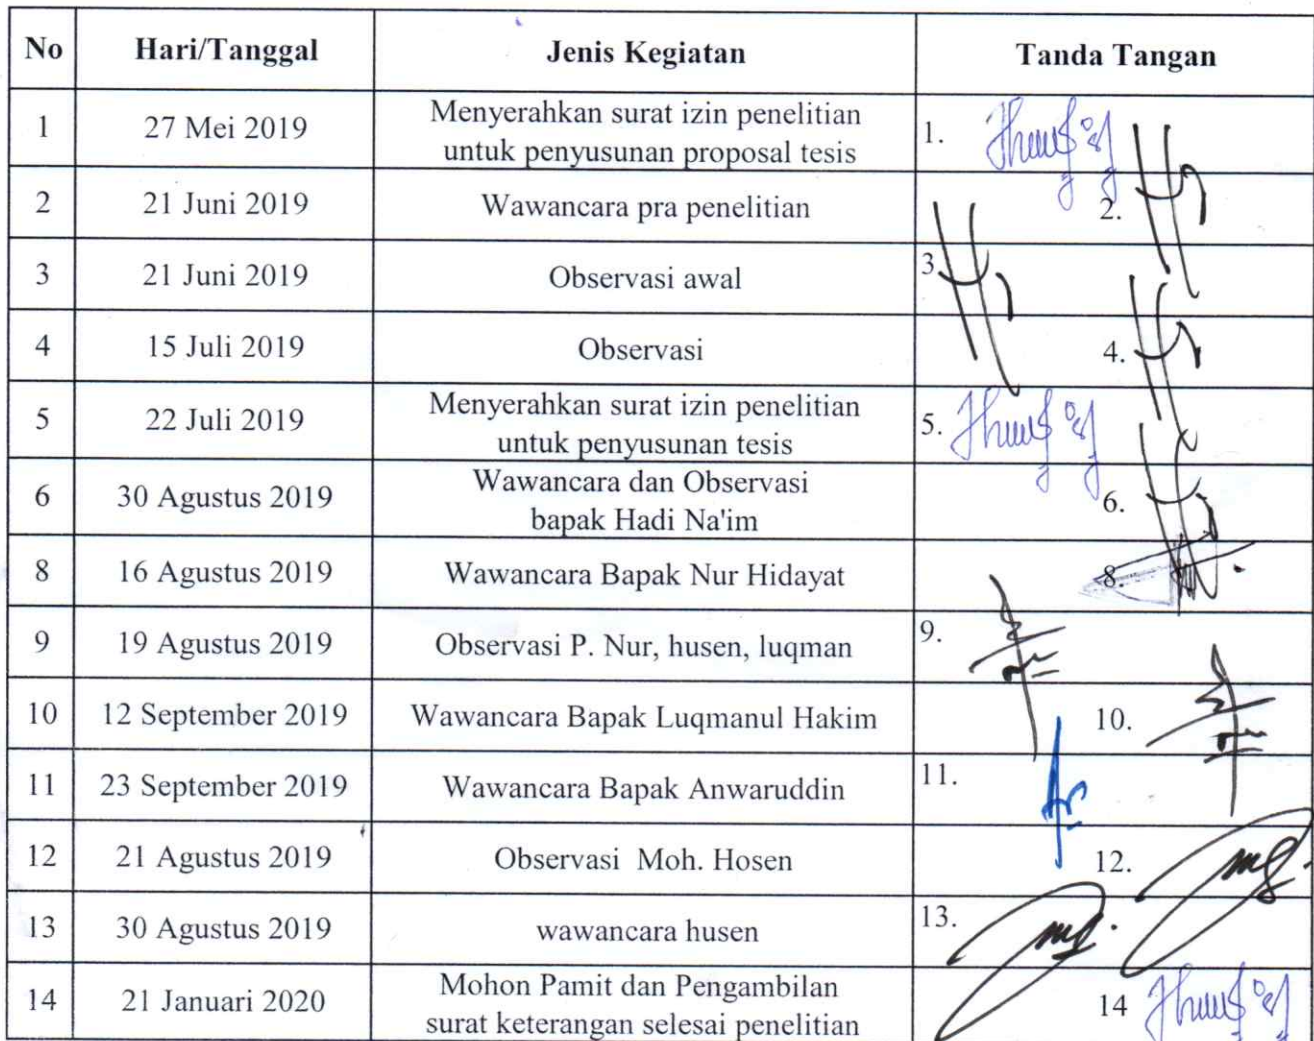 No Hari/Tanggal Jenis Kegiatan Tanda Tangan
1 27 Mei 2019 Menyerahkan surat izin penelitian 1.
untuk penyusunan proposal tesis
2 21 Juni 2019 Wawancara pra penelitian 2.
3 21 Juni 2019 Observasi awal 3.
4 15 Juli 2019 Observasi 4.
5 22 Juli 2019 Menyerahkan surat izin penelitian 5.
untuk penyusunan tesis
6 30 Agustus 2019 Wawancara dan Observasi 6.
bapak Hadi Na'im
8 16 Agustus 2019 Wawancara Bapak Nur Hidayat 8.
9 19 Agustus 2019 Observasi P. Nur, husen, luqman 9.
10 12 September 2019 Wawancara Bapak Luqmanul Hakim 10.
11 23 September 2019 Wawancara Bapak Anwaruddin 11.
12 21 Agustus 2019 Observasi Moh. Hosen 12.
13 30 Agustus 2019 wawancara husen 13.
14 21 Januari 2020 Mohon Pamit dan Pengambilan 14
surat keterangan selesai penelitian